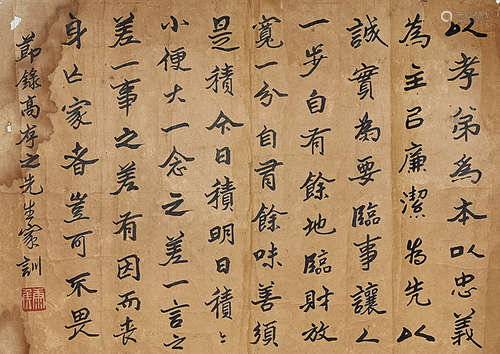 以孝弟為本以忠義
為主以廉潔為先以
誠實為要臨事讓人
一步自有餘地臨財放
寬一分自有餘味善須
是積今日積明日積積
小便大一念之差一言之
差一事之差有因而喪
身亡家者豈可不畏
節錄高存之先生家訓